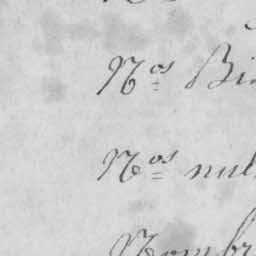 Nos Bi
Nos nul
Nombr